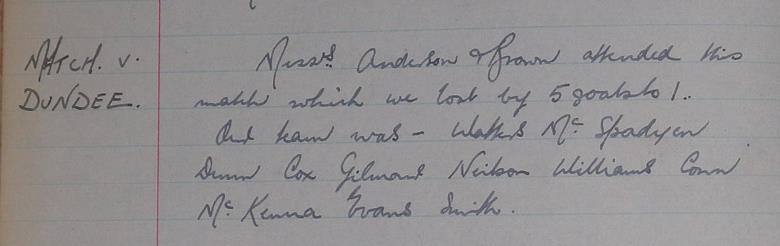 MATCH. V.
DUNDEE.
Messrs Anderson & Brown attended this
match which we lost by 5 goals to 1.
Out team was - Watters Mc Spadyen
Dunn Cox Gilmour Neilson Williams Conn
Mc Kenna Evans Smith.